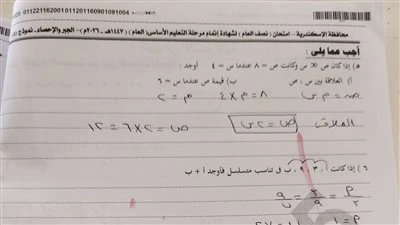 01122116200112011609010910​04
محافظة الإسكندرية - امتحان (نصف العام) لشهادة إتمام مرحلة التعليم الأساسى (العام) ١٤٤٧هـ - ٢٠٢٦م - الجبر والإحصاء - نموذج
أجب عما يلى :
٥) إذا كان ص ∝ س وكانت ص = ٨ عندما س = ٤ أوجد :
أ) العلاقة بين س ، ص ب) قيمة ص عندما س = ٦
ص = م س ٨ = م × ٤ م = ٢
العلاقة ص = ٢ س ص = ٢ × ٦ = ١٢
٦) إذا كانت أ ، ٣ ، ٩ ، ب فى تناسب متسلسل فأوجد أ + ب
أ/٣ = ٣/٩ = ٩/ب